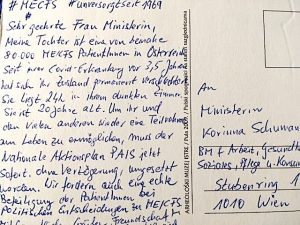 #MECFS #unversorgtseit1969
Sehr geehrte Frau Ministerin,
Meine Tochter ist eine von beinahe
80.000 MECFS PatientInnen in Österreich
Seit ihrer Covid-Erkrankung vor 3,5 Jahren
hat sich ihr Zustand permanent verschlechtert.
Sie liegt 24h in ihrem dunklen Zimmer.
Sie ist 20 Jahre alt. Um ihr und
den vielen anderen wieder eine Teilnahme
am Leben zu ermöglichen, muss der
Nationale Aktionsplan PAIS jetzt
sofort, ohne Verzögerung, umgesetzt
werden. Wir fordern auch eine echte
Beteiligung der PatientInnen bei
Politischen Entscheidungen zu ME/CFS
ARHEOLOŠKI MUZEJ ISTRE / Pula
An
Ministerin
Korinna Schumann
BM f. Arbeit, Gesundheit
Soziales, Pflege u. Konsum
Stubenring 1
1010 Wien